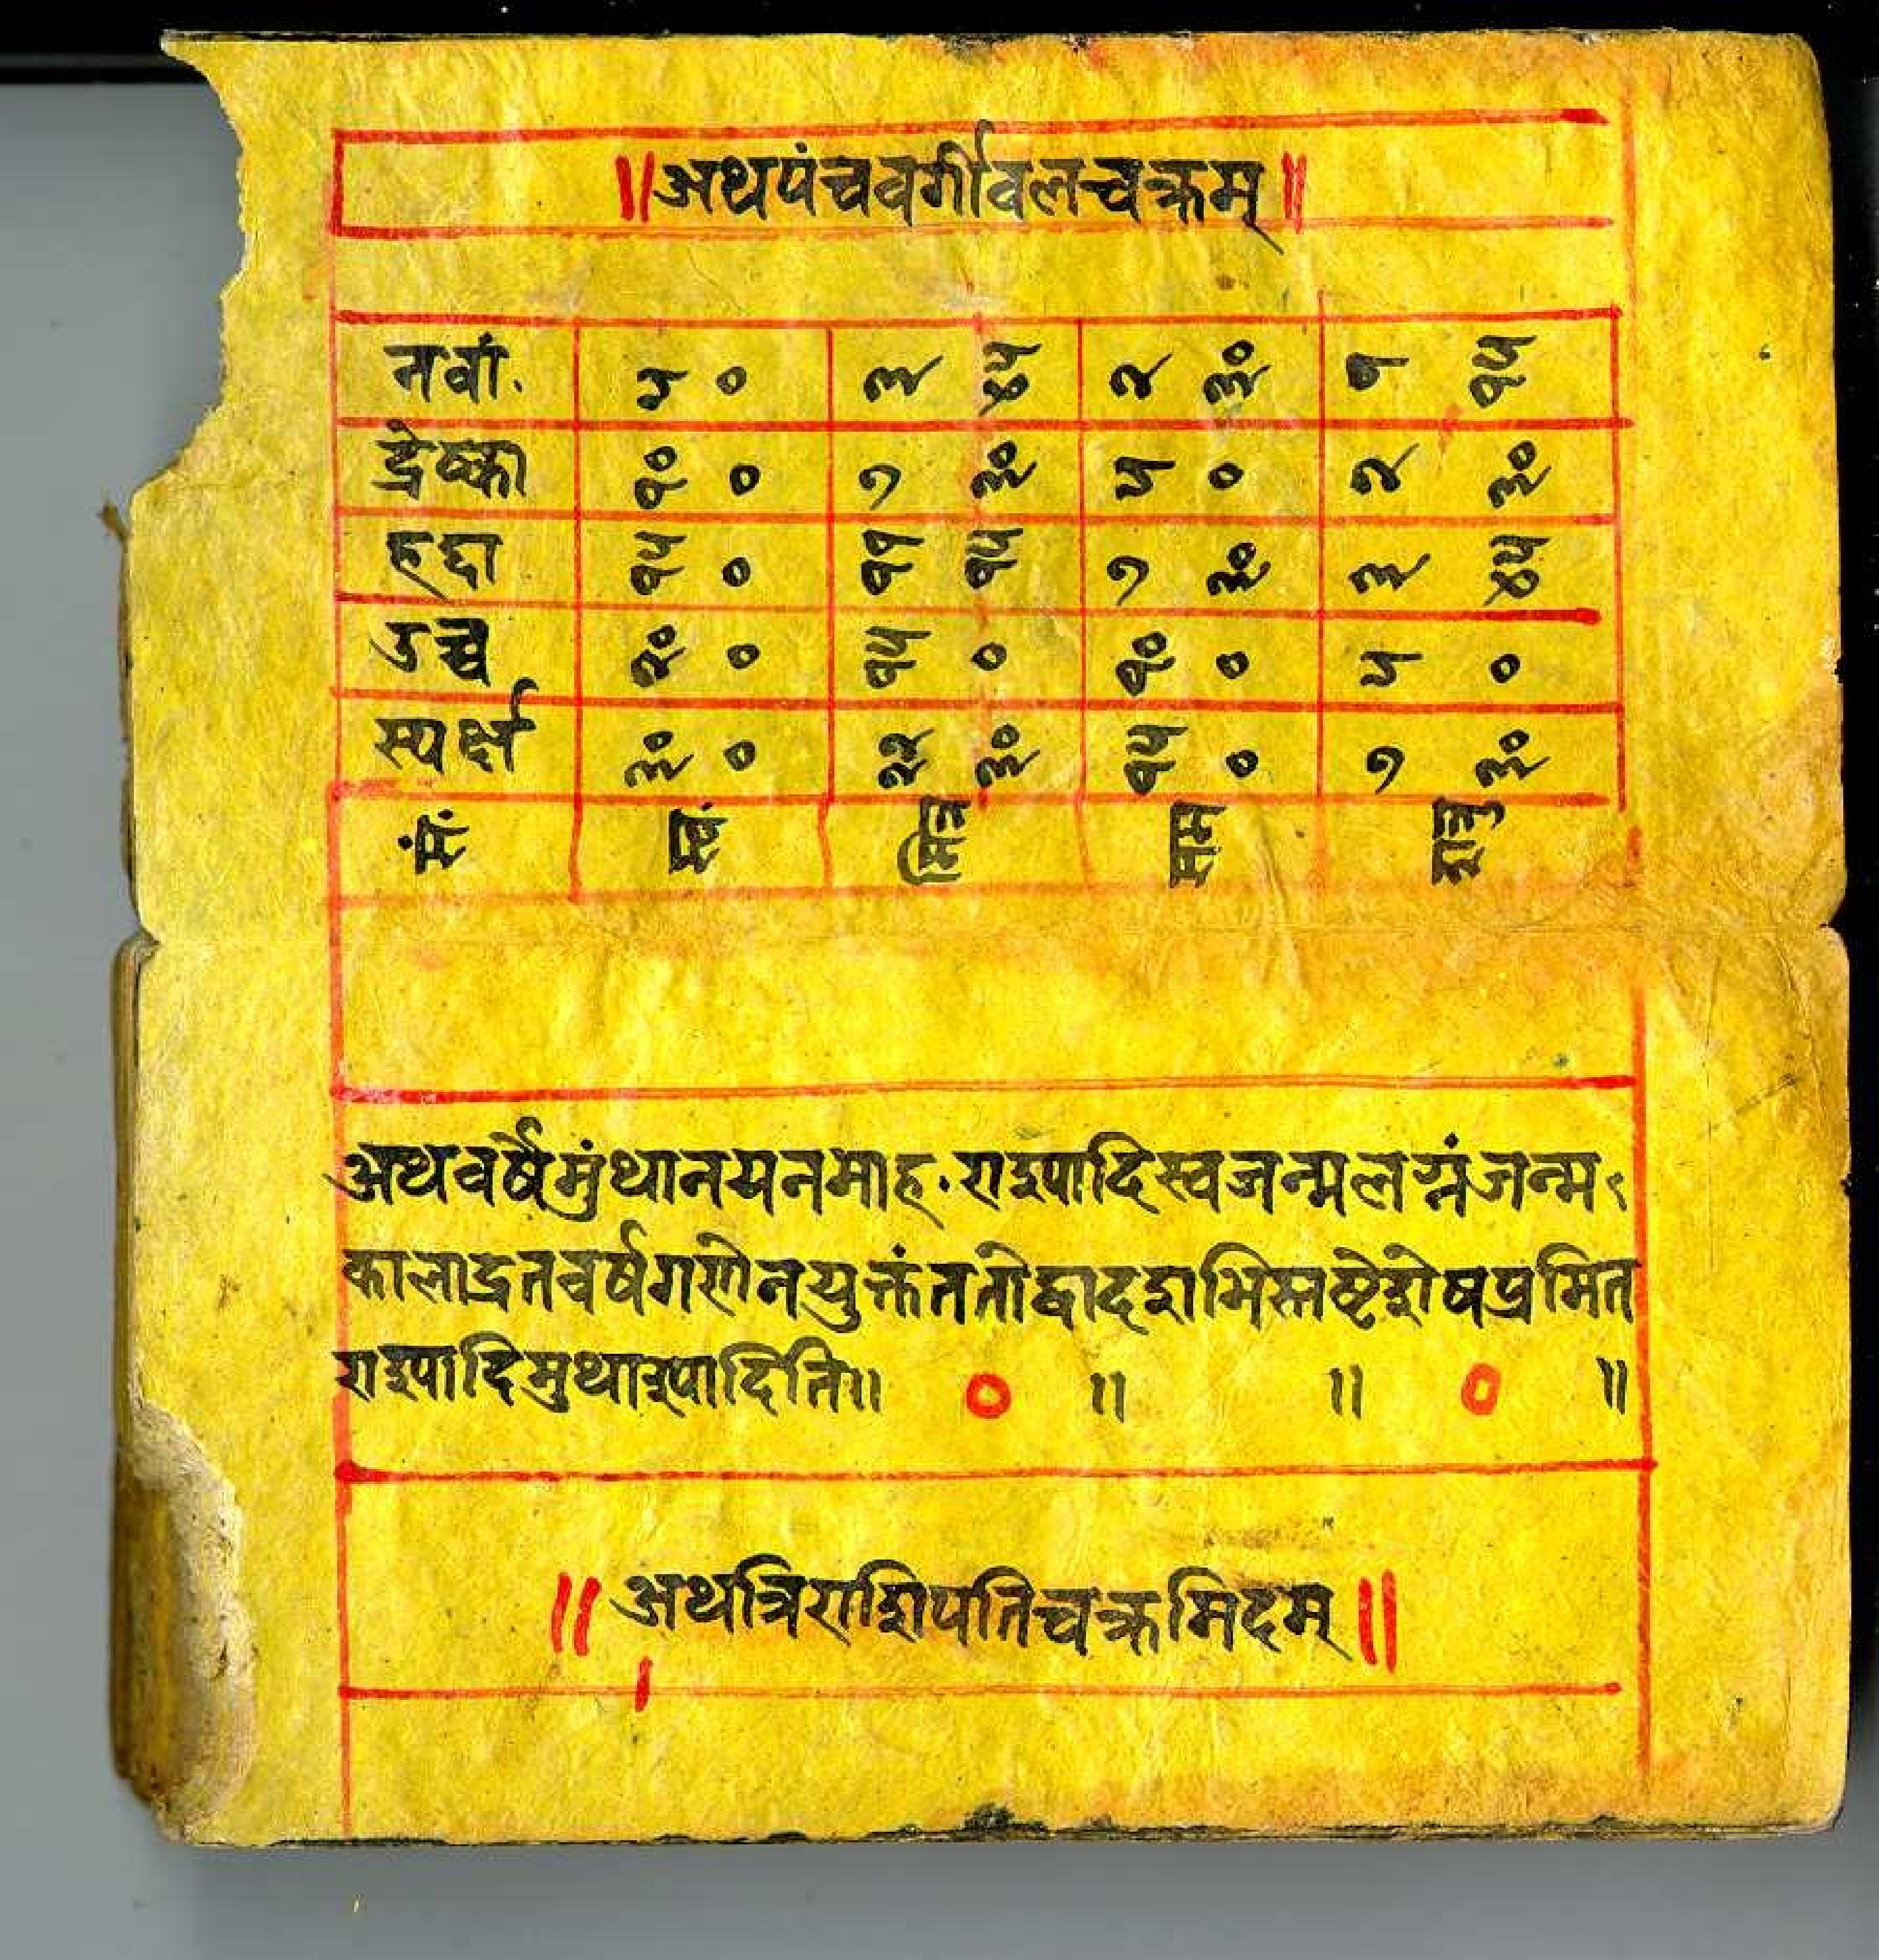 ॥अथपंचवर्गीवलचक्रम्॥
नवां. ५ ० ३ ४५ २ ३० १ १५
द्रेष्का १० ० ७ ३० ५ ० २ ३०
हद्दा १५ ० ११ १५ ७ ३० ३ ४५
उच्च २० ० १५ ० १० ० ५ ०
स्वर्क्ष ३० ० २२ ३० १५ ० ७ ३०
मित्र सम शत्रु
अथवर्षेमुंथानयनमाह.राश्यादिस्वजन्मलग्नंजन्म
कालाद्गतवर्षगणेनयुक्तंततोद्वादशभिस्तष्टेशेषप्रमित
राश्यादिमुथाश्यादिति॥ ० ॥ ॥ ० ॥
॥अथत्रिराशिपतिचक्रमिदम्॥